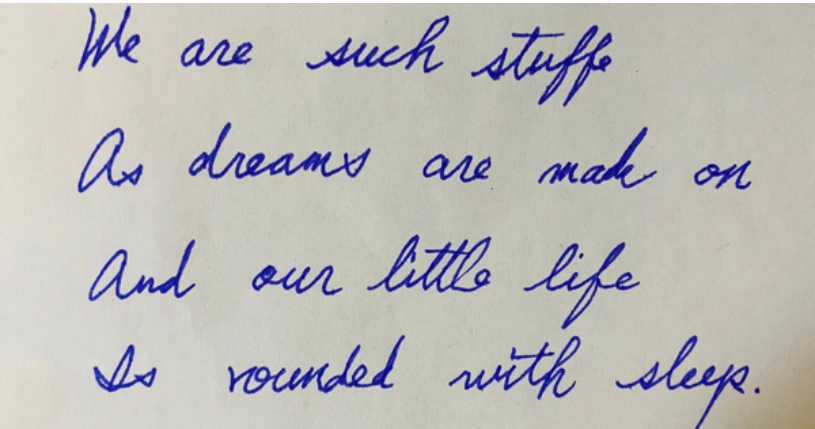 We are such stuffe
As dreams are made on
And our little life
Is rounded with sleep.